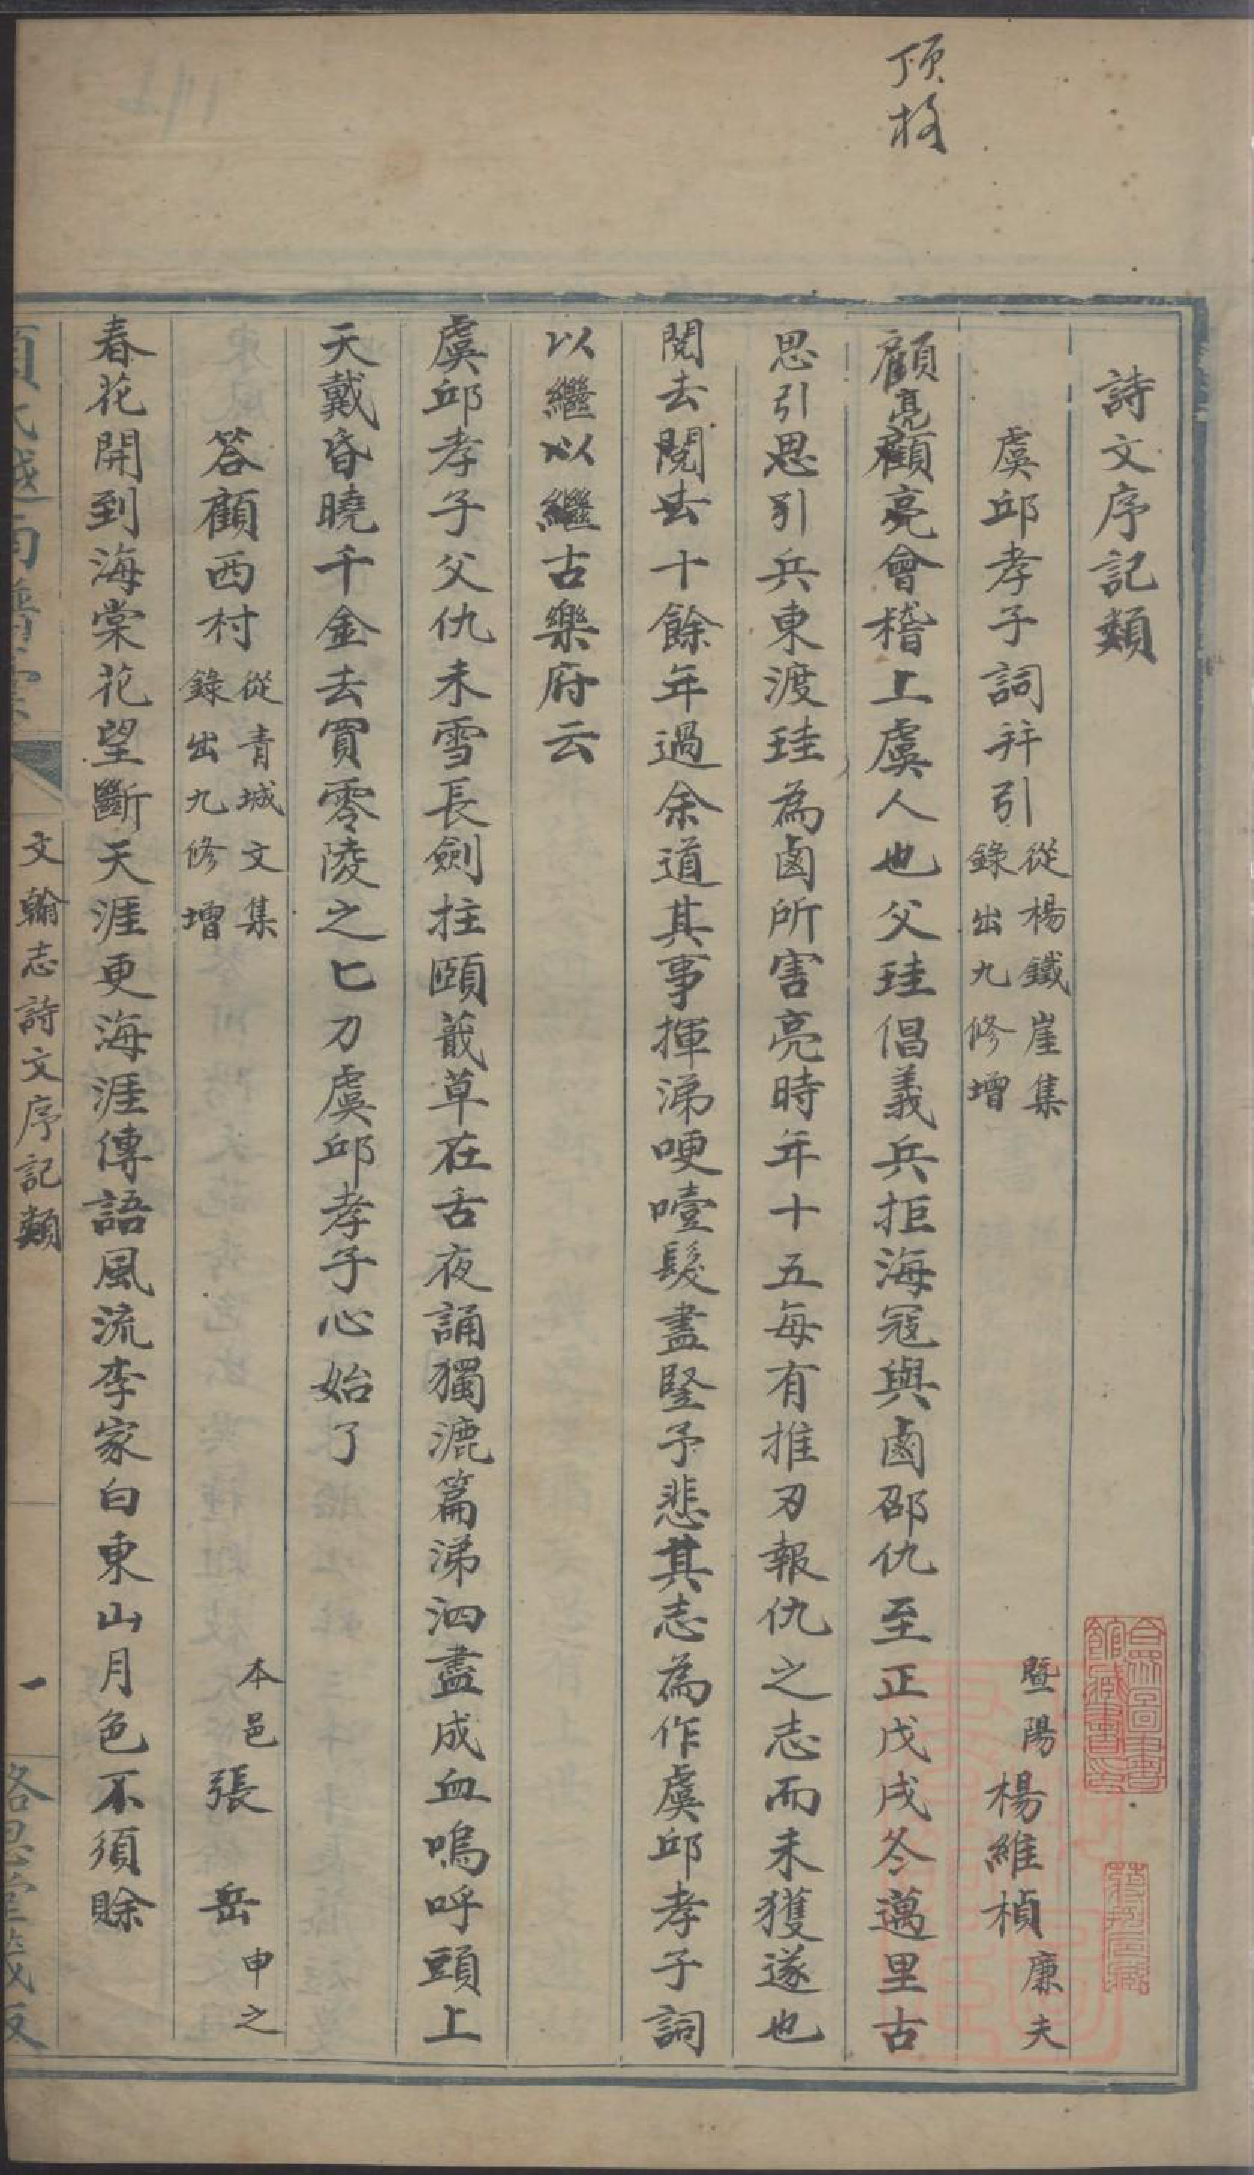 頂格
詩文序記類
虞邱孝子詞并引 從楊鐵崖集錄出九修增 暨陽楊維楨廉夫
顧亮顧亮會稽上虞人也父珪倡義兵拒海寇與鹵邵仇至正戊戌冬邁里古
思引思引兵東渡珪為鹵所害亮時年十五每有推刃報仇之志而未獲遂也
閱去閱去十餘年過余道其事揮涕哽噎髮盡豎予悲其志為作虞邱孝子詞
以繼以繼古樂府云
虞邱孝子父仇未雪長劍拄頤蕺草在舌夜誦獨漉篇涕泗盡成血嗚呼頭上
天戴昏曉千金去買零陵之匕刀虞邱孝子心始了
答顧西村 從青城文集錄出九修增 本邑張岳申之
春花開到海棠花望斷天涯更海涯傳語風流李家白東山月色不須賒
文翰志詩文序記類 一